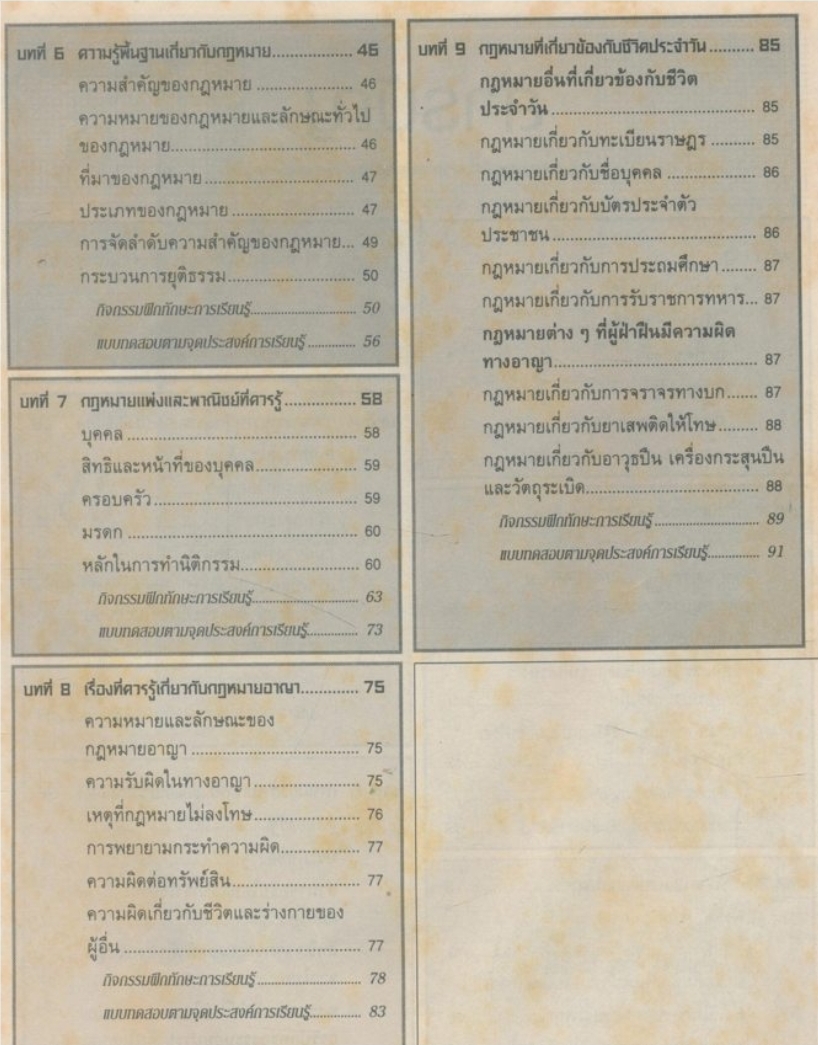 บทที่ 6 ความรู้พื้นฐานเกี่ยวกับกฎหมาย.................. 45
ความสำคัญของกฎหมาย ..................... 46
ความหมายของกฎหมายและลักษณะทั่วไป
ของกฎหมาย........................................ 46
ที่มาของกฎหมาย ................................. 47
ประเภทของกฎหมาย ........................... 47
การจัดลำดับความสำคัญของกฎหมาย... 49
กระบวนการยุติธรรม............................ 50
กิจกรรมฝึกทักษะการเรียนรู้........................ 50
แบบทดสอบตามจุดประสงค์การเรียนรู้ ............. 56
บทที่ 7 กฎหมายแพ่งและพาณิชย์ที่ควรรู้ ................ 58
บุคคล .................................................. 58
สิทธิและหน้าที่ของบุคคล...................... 59
ครอบครัว ............................................ 59
มรดก .................................................. 60
หลักในการทำนิติกรรม......................... 60
กิจกรรมฝึกทักษะการเรียนรู้........................ 63
แบบทดสอบตามจุดประสงค์การเรียนรู้............. 73
บทที่ 8 เรื่องที่ควรรู้เกี่ยวกับกฎหมายอาญา............. 75
ความหมายและลักษณะของ
กฎหมายอาญา .................................... 75
ความรับผิดในทางอาญา ....................... 75
เหตุที่กฎหมายไม่ลงโทษ....................... 76
การพยายามกระทำความผิด................. 77
ความผิดต่อทรัพย์สิน............................ 77
ความผิดเกี่ยวกับชีวิตและร่างกายของ
ผู้อื่น .................................................... 77
กิจกรรมฝึกทักษะการเรียนรู้ ........................ 78
แบบทดสอบตามจุดประสงค์การเรียนรู้............. 83
บทที่ 9 กฎหมายที่เกี่ยวข้องกับชีวิตประจำวัน .......... 85
กฎหมายอื่นที่เกี่ยวข้องกับชีวิต
ประจำวัน ............................................. 85
กฎหมายเกี่ยวกับทะเบียนราษฎร ......... 85
กฎหมายเกี่ยวกับชื่อบุคคล .................. 86
กฎหมายเกี่ยวกับบัตรประจำตัว
ประชาชน ............................................ 86
กฎหมายเกี่ยวกับการประถมศึกษา ....... 87
กฎหมายเกี่ยวกับการรับราชการทหาร... 87
กฎหมายต่าง ๆ ที่ผู้ฝ่าฝืนมีความผิด
ทางอาญา............................................ 87
กฎหมายเกี่ยวกับการจราจรทางบก....... 87
กฎหมายเกี่ยวกับยาเสพติดให้โทษ ......... 88
กฎหมายเกี่ยวกับอาวุธปืน เครื่องกระสุนปืน
และวัตถุระเบิด...................................... 88
กิจกรรมฝึกทักษะการเรียนรู้ ........................ 89
แบบทดสอบตามจุดประสงค์การเรียนรู้............. 91